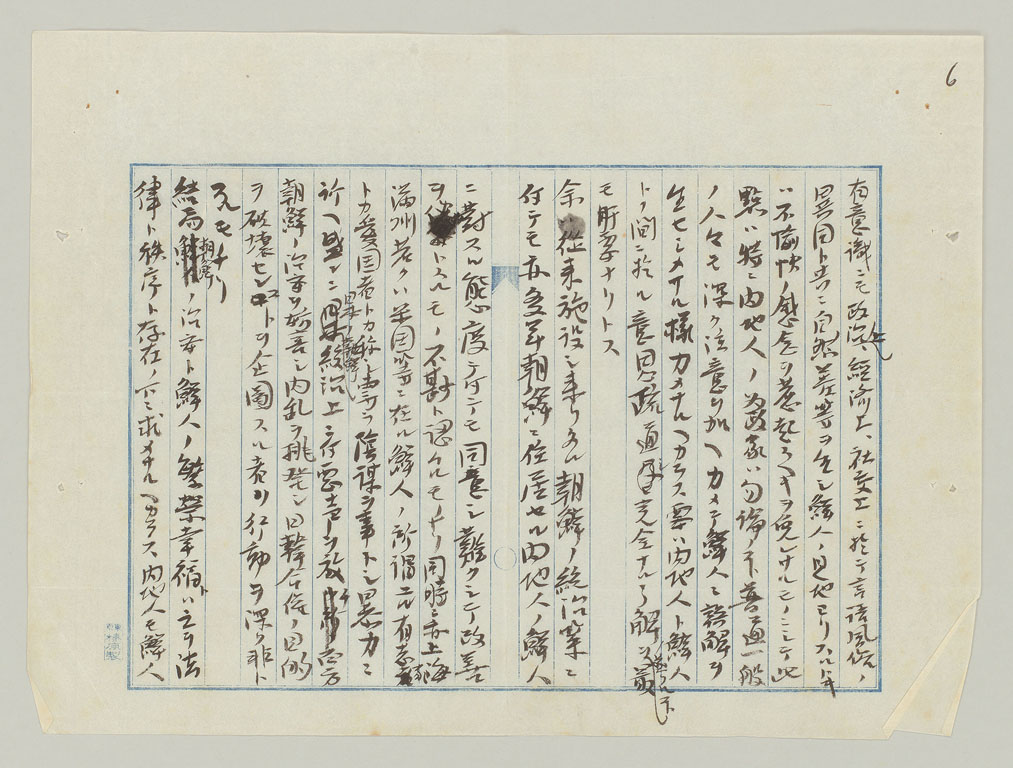 6
有意識ニモ政治上経済上、社交上ニ於テ言語風俗ノ
異同ト共ニ自然差等ヲ生シ鮮人ノ見地ヨリスレハ
ハ不愉快ノ感念ヲ惹起スヘキヲ免レサルモノニシテ此
點ハ特ニ内地人ノ為政家ハ勿論
普通一般
ノ人々モ深ク注意ヲ加ヘカメテ鮮人ニ誤解ヲ
生セシメサル様力メサルヘカラス要ハ内地人ト鮮人
トノ間ニ於ル意思疏通
完全ナル了解
最
モ肝要ナリトス
余ハ従来施設シ来リタル朝鮮ノ統治策ニ
付テモ亦多年朝鮮ニ住居セル内地人ノ鮮人
ニ對スル態度ニ付テモ同意シ難クシテ改善
ヲ
トスルモノ不尠ト認ムルモノナリ同時ニ亦上海
満洲若クハ米国等ニ在ル鮮人ノ所謂
有志家
トカ愛国者トカ称
陰謀ヲ事トシ暴力ニ
訴ヘ盛ンニ
日本ノ朝鮮
統治上ニ付悪声ヲ放チ
朝鮮ノ治安ヲ妨害シ内乱ヲ挑発シ日韓合併ノ目的
ヲ破壊セン
トヲ企図スル者ノ行動ヲ深ク非ト
スルモノナリ
結局朝鮮ノ治安ト鮮人ノ繁榮幸福トハ
法
律ト秩序ト存在ノ下ニ求メサルヘカラス内地人モ鮮人